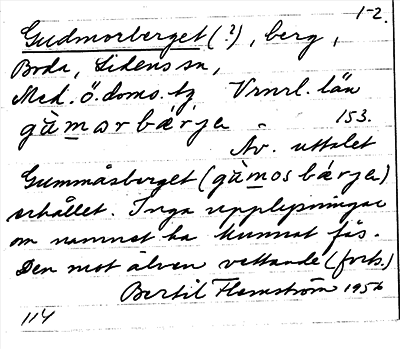 1-2.
Gudmorberget (?), berg,
Boda, Lidens sn,
Med. ö. doms. tg Vrnrl. län
gàmorbárja - 153.
Av. uttalet
Gummåsberget (gàmosbárja)
erhållet. Inga upplysningar
om namnet ha kunnat fås.
Den mot älven vettande (forts.)
Bertil Flemström 1956
114